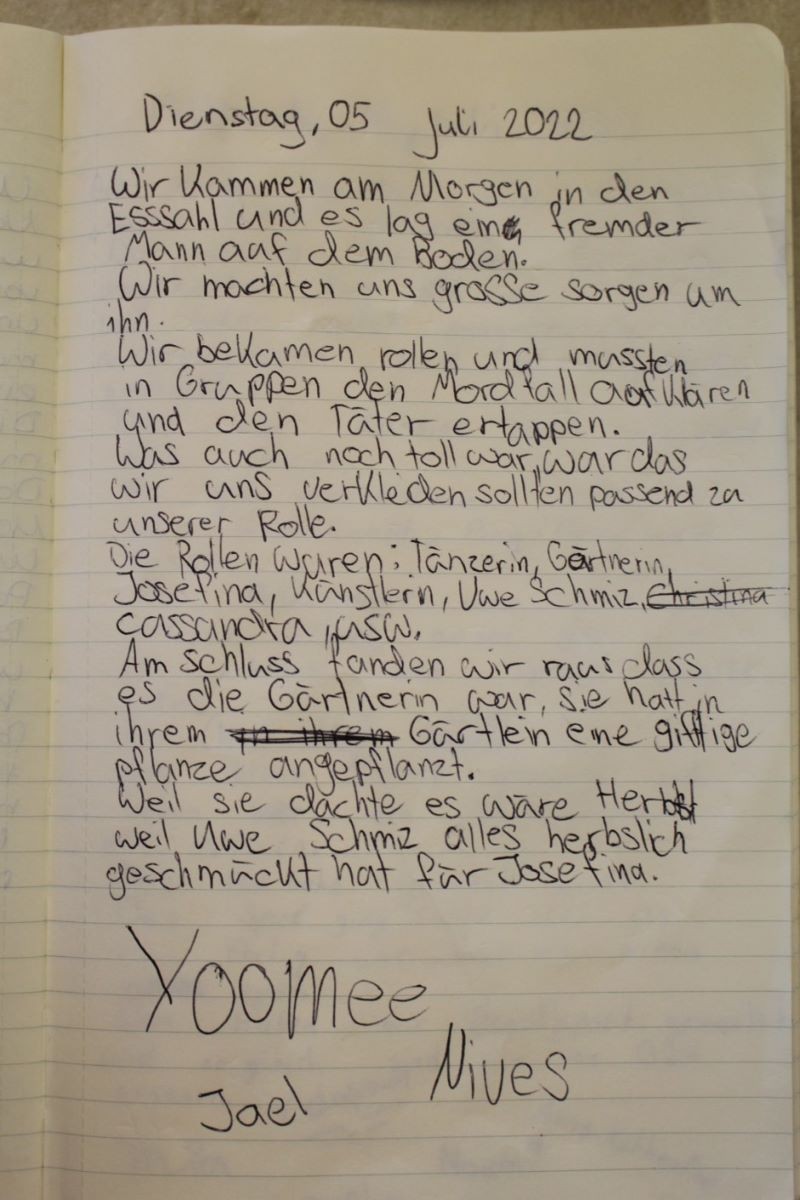 Dienstag, 05 Juli 2022
Wir Kammen am Morgen in den
Esssahl und es lag ein fremder
Mann auf dem Boden.
Wir machten uns grosse sorgen um
ihn.
Wir bekamen rollen und mussten
in Gruppen den Mordfall aufklären
und den Täter ertappen.
Was auch noch toll war, war das
wir uns verkleden sollten passend zu
unserer Rolle.
Die Rollen wuren: Tänzerin, Gärtnerin,
Josefina, Künstlerin, Uwe Schmiz, Christina
Cassandra, usw.
Am schluss fanden wir raus dass
es die Gärtnerin war, sie hatt in
ihrem in ihrem Gärtlein eine giftige
pflanze angepflanzt.
Weil sie dachte es wäre Herbst
weil Uwe Schmiz alles herbslich
geschmückt hat für Josefina.
Yoomee
Nives
Jael